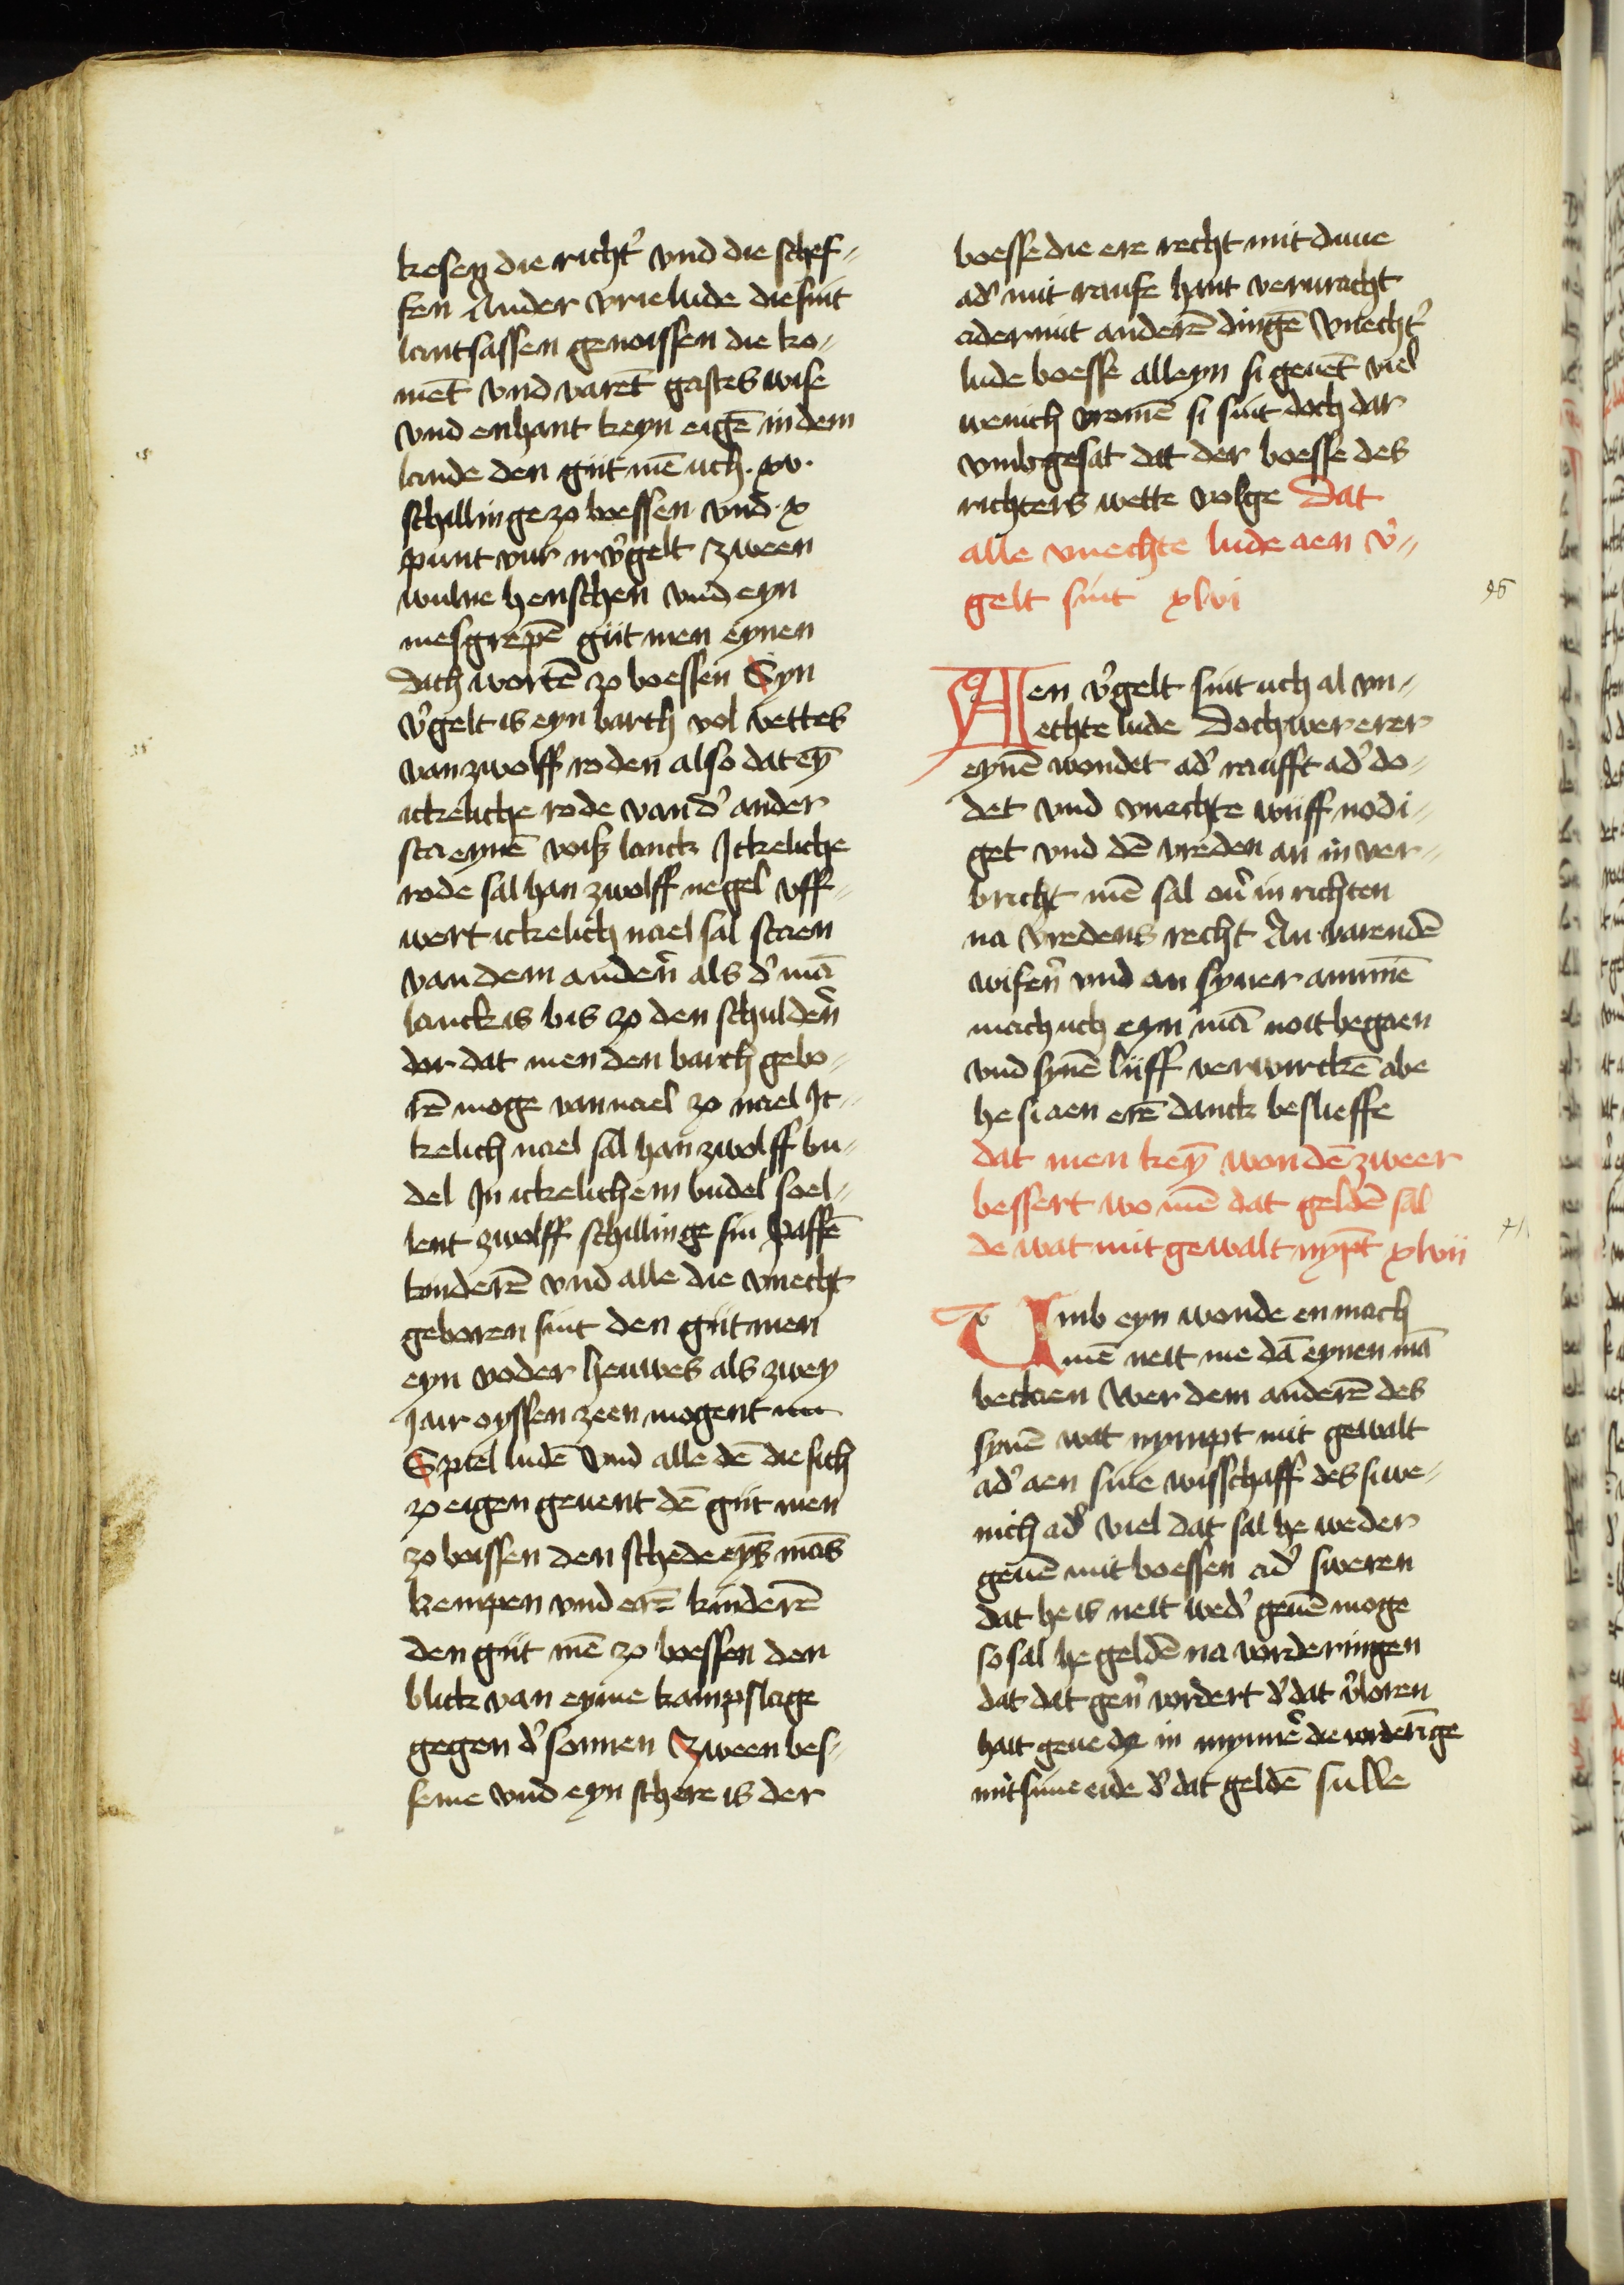 kesen die richt' vnd die schef-
fen Ander vrie lude die sint
lantsassen genoissen die ko-
mēt vnd varēt gastes wise
vnd enhant keyn eigē in dem
lande den giit mē uch · xv ·
schillinge zo boessen vnd · x
punt vur ir v'gelt zween
wulne henschen vnd eyn
mesgrepē giit men eynen
dach wortē zo boessen Syn
v'gelt is eyn barch vol vettes
van zwolff roden also dat eȳ
ickeliche rode van d' ander
sta eynē voiß lanck Ickeliche
rode sal han zwolff negel vff-
wert ickelich nael sal staen
van dem anderē als d' mā
lanck is bis zo den schulderē
dor dat men den barch gebo-
rē moge van nael zo nael Ic-
kelich nael sal han zwolff bu-
del In ickelichem budel soel-
lent zwolff schillinge sin Paffē
kinderē vnd alle die vnecht
geboren sint den giit men
eyn voder heuwes als zwey
Jair oyssen zeen mogent
Spiel ludē vnd alle dē die sich
zo eigen geuent dē giit men
zo boissen den schede eyn̄s mās
kempen vnd erē kinderē
den giit mē zo boessen den
blick van eyme kampslage
gegen d' sonnen Zween bes-
seme vnd eyn schere is der
boesse die ere recht mit duue
ad' mit raufe hant verwracht
ader mit anderē dingē vnecht'
lude boesse alleyn si geuēt viel
wenich vromē si sint doch dar
vmb gesat dat der boesse des
richters wette volge Dat
alle vnechte lude aen v'-
gelt sint xlvi
46
Aen v'gelt sint uch al vn-
echte lude Doch wer erer
eynē wondet ad' raufft ad' do-
det vnd vnechte wiiff nodi-
get vnd dē vreden an in ver-
bricht mē sal ou' in richten
na vredens recht An varendē
wifen' vnd an syner ammiē
mach uch eyn mā noit begaen
vnd synē liiff verwirckē abe
he si aen erē danck beslieffe
dat men keȳ wondē zweer
bessert wo mē dat geldē sal
de wat mit gewalt nȳpt xlvii
Vmb eyn wonde en mach
mē neit me dā eynen mā
beclaen Wer dem anderē des
synē wat nympt mit gewalt
ad' aen sine wisschaff des si we-
nich ad' viel dat sal he weder
geuē mit boessen ad' sweren
dat he is neit wed' geuē moge
so sal he geldē na vorderingen
dat dat gen' vordert d' dat v'loren
hait geue he in mynnē die vorderīge
mit sime eide d' dat geldē sulle